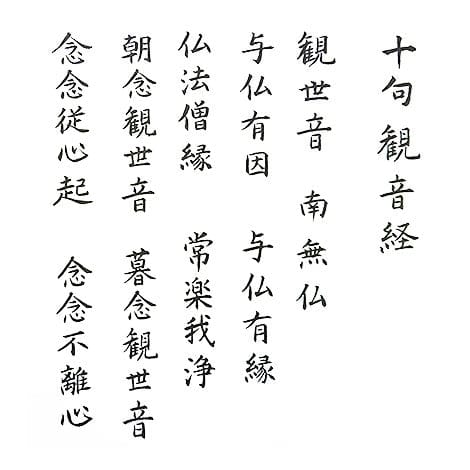 十句観音経
観世音　南無仏
与仏有因　与仏有縁
仏法僧縁　常楽我浄
朝念観世音　暮念観世音
念念従心起　念念不離心